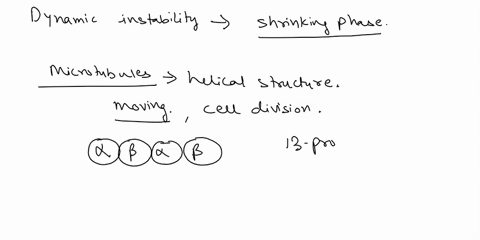 Dynamic instability → shrinking phase.
Microtubules → helical structure.
moving, cell division.
α β α β 13-pro